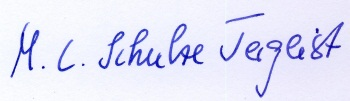 M. C. Schulze Tergeist